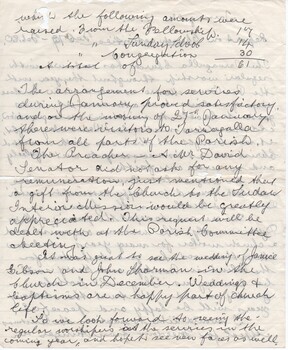 which the following amounts were
raised. From the Fellowship 17
" Sunday School 14
" Congregation 30
A total of 61
The arrangement for services
during January, proved satisfactory,
and on the morning of 27th January
there were visitors to Yarragella
from all parts of the Parish.
The Preacher - A Mr David
Senator did not ask for any
remuneration, but mentioned that
a gift from the Church to the Sudan
Interior Mission would be greatly
appreciated. This request will be
dealt with at the Parish Committee
Meeting.
It was great to see the wedding of Janice
Gibson and John Sharman in the
Church in December. Weddings &
Baptisms are a happy part of church
life.
So we look forward to seeing the
regular worshipers at the services in the
coming year, and hope to see new faces as well.